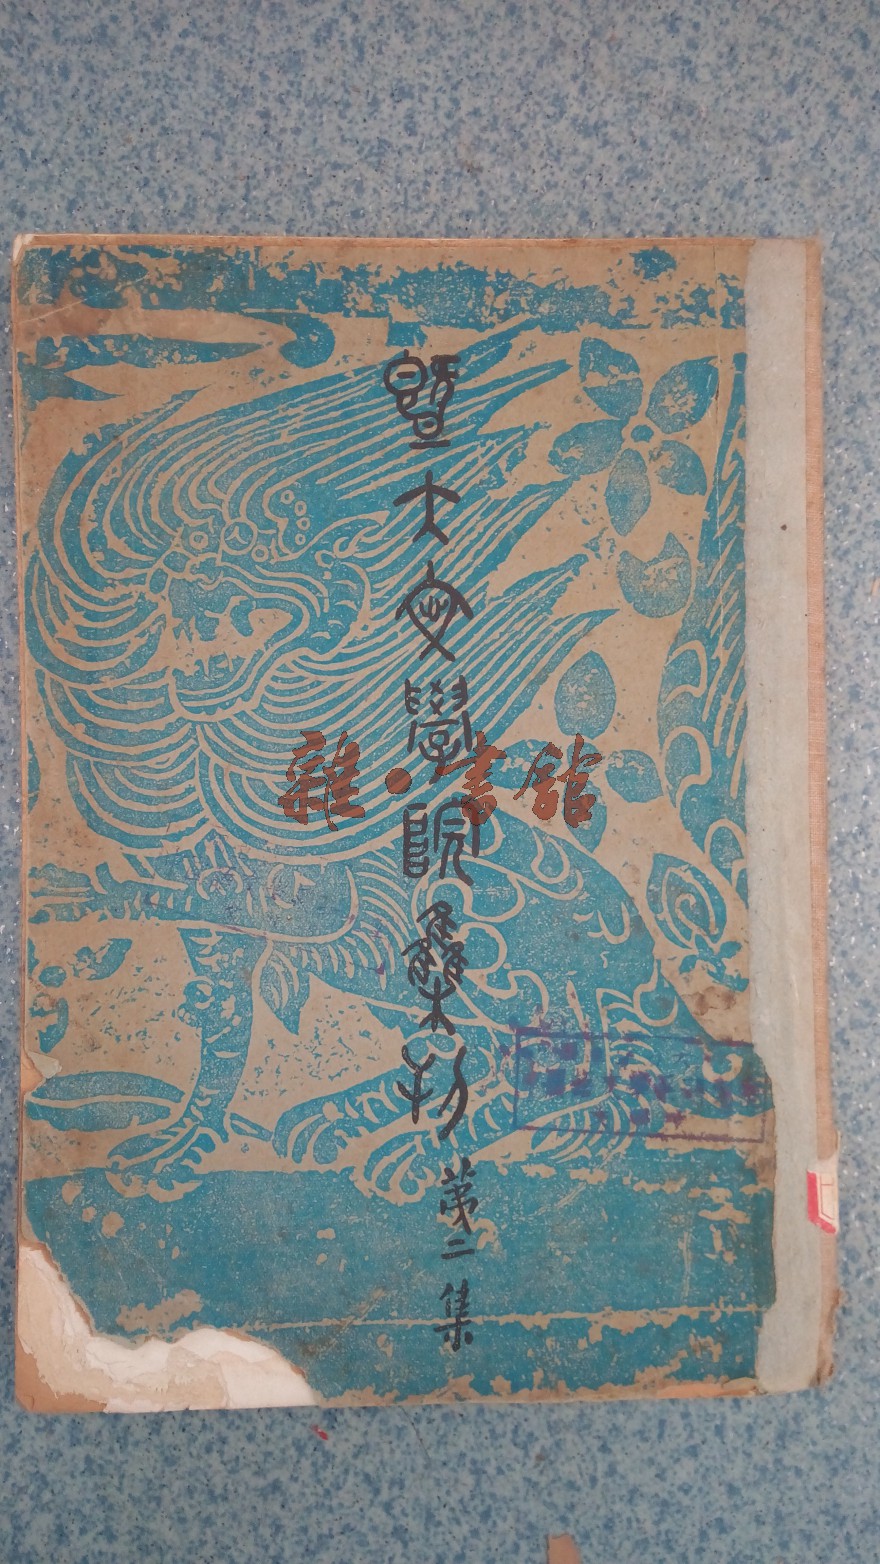 暨大文學院叢刊 第二集
雜·書館